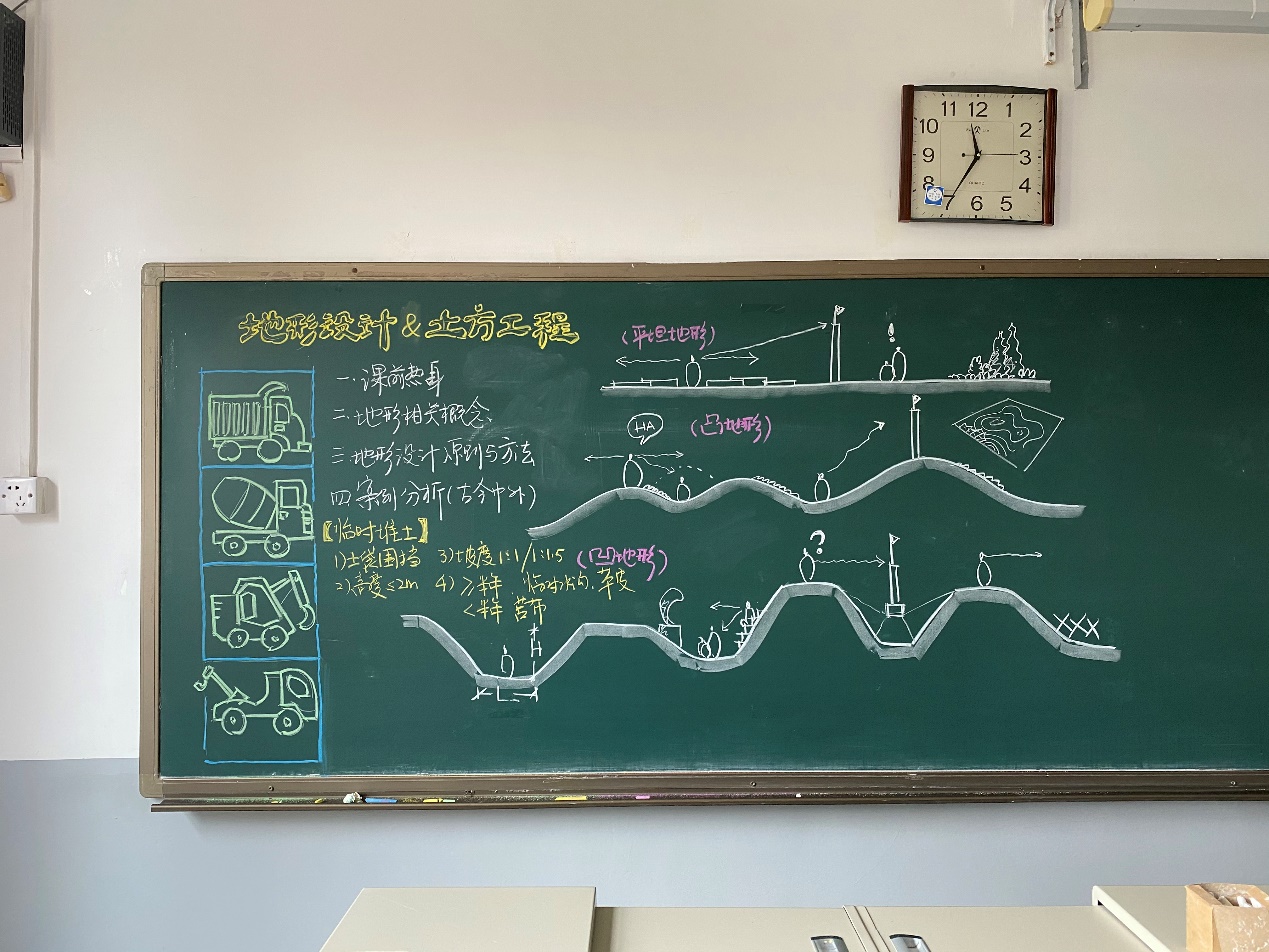 地形设计 & 土方工程
一.课前热身
二.地形相关概念
三.地形设计原则与方法
四.案例分析(古今中外)
【临时堆土】
1)土袋围挡 3)坡度1:1/1:1.5
2)高度≤2m 4)≥半年.临时排水沟.草皮
<半年 苫布
(平坦地形)
(凸地形)
HA
(凹地形)
?
H
L
11 12 1
10 2
9 3
8 4
7 6 5